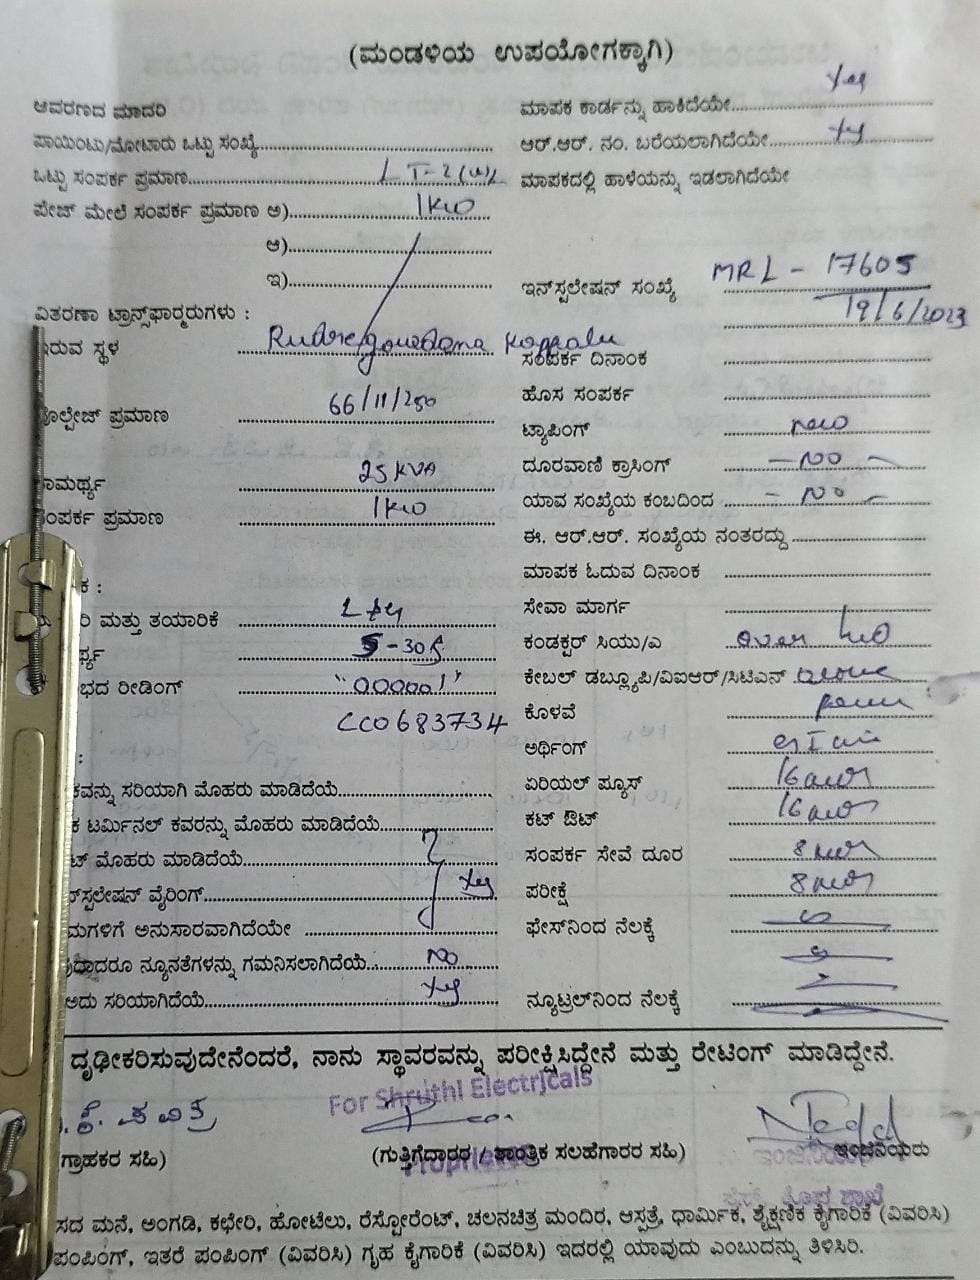 (ಮಂಡಳಿಯ ಉಪಯೋಗಕ್ಕಾಗಿ)
ಆವರಣದ ಮಾದರಿ
ಪಾಯಿಂಟು/ಮೋಟಾರು ಒಟ್ಟು ಸಂಖ್ಯೆ
ಒಟ್ಟು ಸಂಪರ್ಕ ಪ್ರಮಾಣ LT-2(a)
ಪೇಜ್ ಮೇಲೆ ಸಂಪರ್ಕ ಪ್ರಮಾಣ ಅ) 1KW
ಆ)
ಇ)
ವಿತರಣಾ ಟ್ರಾನ್ಸ್‌ಫಾರ್ಮರುಗಳು :
ಇರುವ ಸ್ಥಳ Rudregowdana Koppalu
ವೋಲ್ಟೇಜ್ ಪ್ರಮಾಣ 66/11/250
ಸಾಮರ್ಥ್ಯ 25 KVA
ಸಂಪರ್ಕ ಪ್ರಮಾಣ 1KW
ಕ :
ರಿ ಮತ್ತು ತಯಾರಿಕೆ L&T
ರ್ಥ್ಯ 5-30
ಭದ ರೀಡಿಂಗ್ "00001"
CC0683734
:
ಕವನ್ನು ಸರಿಯಾಗಿ ಮೊಹರು ಮಾಡಿದೆಯೆ
ಕ ಟರ್ಮಿನಲ್ ಕವರನ್ನು ಮೊಹರು ಮಾಡಿದೆಯೆ
ಟ್ ಮೊಹರು ಮಾಡಿದೆಯೆ
ನ್‌ಸ್ಟಲೇಷನ್ ವೈರಿಂಗ್ Yes
ಮಗಳಿಗೆ ಅನುಸಾರವಾಗಿದೆಯೇ
ವುದಾದರೂ ನ್ಯೂನತೆಗಳನ್ನು ಗಮನಿಸಲಾಗಿದೆಯೆ No
ಅದು ಸರಿಯಾಗಿದೆಯೆ Yes
ಮಾಪಕ ಕಾರ್ಡನ್ನು ಹಾಕಿದೆಯೇ Yes
ಆರ್.ಆರ್. ನಂ. ಬರೆಯಲಾಗಿದೆಯೇ Yes
ಮಾಪಕದಲ್ಲಿ ಹಾಳೆಯನ್ನು ಇಡಲಾಗಿದೆಯೇ
ಇನ್‌ಸ್ಟಲೇಷನ್ ಸಂಖ್ಯೆ MRL - 17605
19/6/2023
ಸಂಪರ್ಕ ದಿನಾಂಕ
ಹೊಸ ಸಂಪರ್ಕ
ಟ್ಯಾಪಿಂಗ್ new
ದೂರವಾಣಿ ಕ್ರಾಸಿಂಗ್ - NO -
ಯಾವ ಸಂಖ್ಯೆಯ ಕಂಬದಿಂದ - NO -
ಈ. ಆರ್.ಆರ್. ಸಂಖ್ಯೆಯ ನಂತರದ್ದು
ಮಾಪಕ ಓದುವ ದಿನಾಂಕ
ಸೇವಾ ಮಾರ್ಗ
ಕಂಡಕ್ಟರ್ ಸಿಯು/ಎ over
ಕೇಬಲ್ ಡಬ್ಲ್ಯೂಪಿ/ವಿಐಆರ್/ಸಿಟಿಎಸ್
ಕೊಳವೆ
ಅರ್ಥಿಂಗ್
ಏರಿಯಲ್ ಫ್ಯೂಸ್ 16
ಕಟ್ ಔಟ್ 16
ಸಂಪರ್ಕ ಸೇವೆ ದೂರ 8
ಪರೀಕ್ಷೆ 8
ಫೇಸ್‌ನಿಂದ ನೆಲಕ್ಕೆ
ನ್ಯೂಟ್ರಲ್‌ನಿಂದ ನೆಲಕ್ಕೆ
ದೃಢೀಕರಿಸುವುದೇನೆಂದರೆ, ನಾನು ಸ್ಥಾವರವನ್ನು ಪರೀಕ್ಷಿಸಿದ್ದೇನೆ ಮತ್ತು ರೇಟಿಂಗ್ ಮಾಡಿದ್ದೇನೆ.
For Shruthi Electricals
ಗ್ರಾಹಕರ ಸಹಿ) (ಗುತ್ತಿಗೆದಾರರ / ತಾಂತ್ರಿಕ ಸಲಹೆಗಾರರ ಸಹಿ) ಇಂಜಿನಿಯರು
Proprietor
ಸದ ಮನೆ, ಅಂಗಡಿ, ಕಛೇರಿ, ಹೋಟೆಲು, ರೆಸ್ಟೋರೆಂಟ್, ಚಲನಚಿತ್ರ ಮಂದಿರ, ಆಸ್ಪತ್ರೆ, ಧಾರ್ಮಿಕ, ಶೈಕ್ಷಣಿಕ ಕೈಗಾರಿಕೆ (ವಿವರಿಸಿ)
ಪಂಪಿಂಗ್, ಇತರೆ ಪಂಪಿಂಗ್ (ವಿವರಿಸಿ) ಗೃಹ ಕೈಗಾರಿಕೆ (ವಿವರಿಸಿ) ಇದರಲ್ಲಿ ಯಾವುದು ಎಂಬುದನ್ನು ತಿಳಿಸಿರಿ.